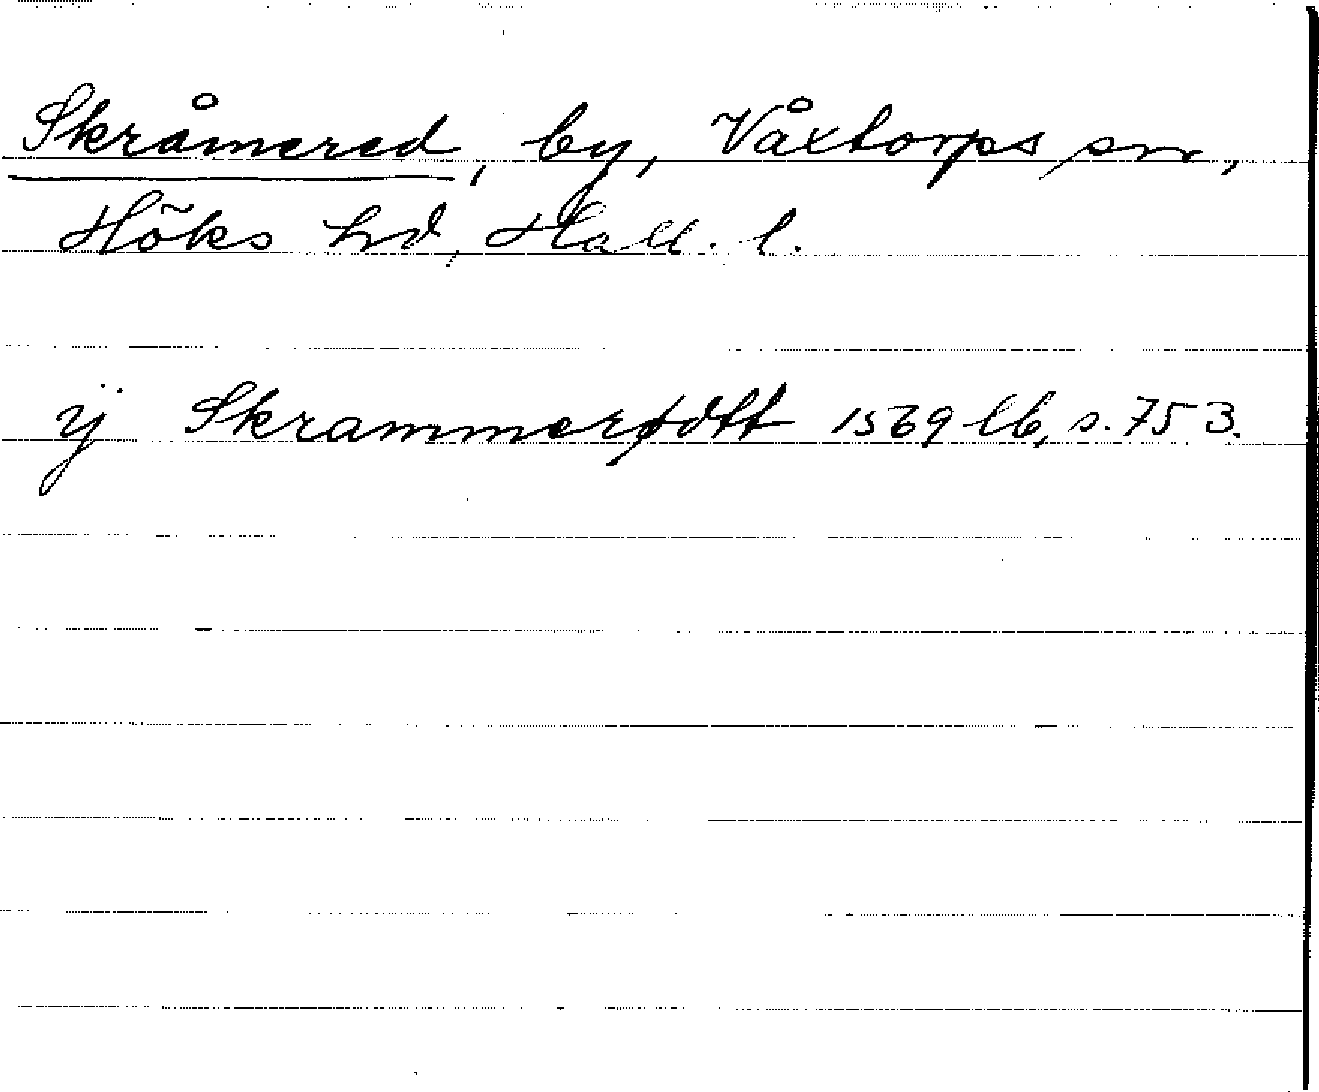 Skråmered, by, Våxtorps sn,
Höks hd, Hall. l.
ÿ Skrammerødtt 1569 lb, s. 753.